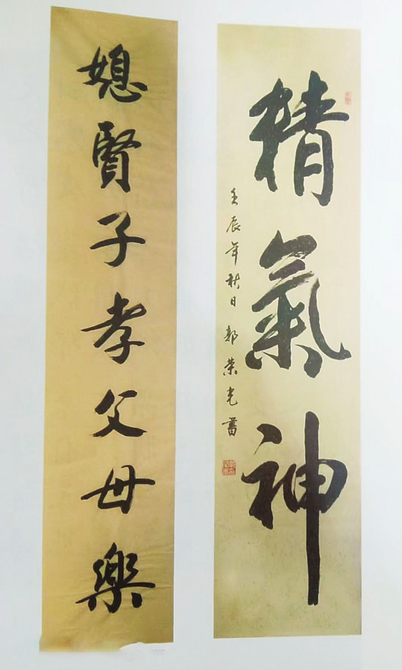 精氣神
壬辰年秋日 郭榮光書
媳賢子孝父母樂